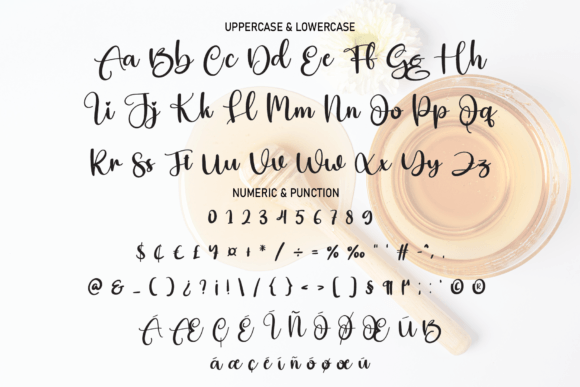 UPPERCASE & LOWERCASE
Aa Bb Cc Dd Ee Ff Gg Hh
Ii Jj Kk Ll Mm Nn Oo Pp Qq
Rr Ss Tt Uu Vv Ww Xx Yy Zz
NUMERIC & PUNCTION
0 1 2 3 4 5 6 7 8 9
$ ₵ € £ ¥ ¤ ı * / ÷ = % ‰ " ' # -^; .
@ & _ ( ) ¿ ? ¡ ! \ / { } < > [ ] § ¶ ; : ' © ®
Á Æ Ç É Í Ñ Ó Ø Œ Ú ß
á æ ç é í ñ ó ø œ ú